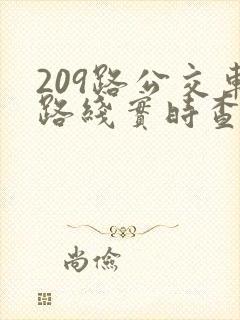 209路公交車
路綫實時查
尚儉